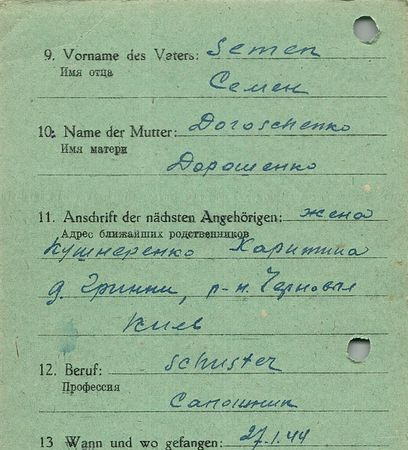 9. Vorname des Vaters: Semen
Имя отца
Семен
10. Name der Mutter: Doroschenko
Имя матери
Дорошенко
11. Anschrift der nächsten Angehörigen: жена
Адрес ближайших родственников
Кушнеренко Харитина
д. Гринки, р-н. Чорновы
Киев
12. Beruf: Schuster
Профессия
Сапошник
13 Wann und wo gefangen: 27.1.44